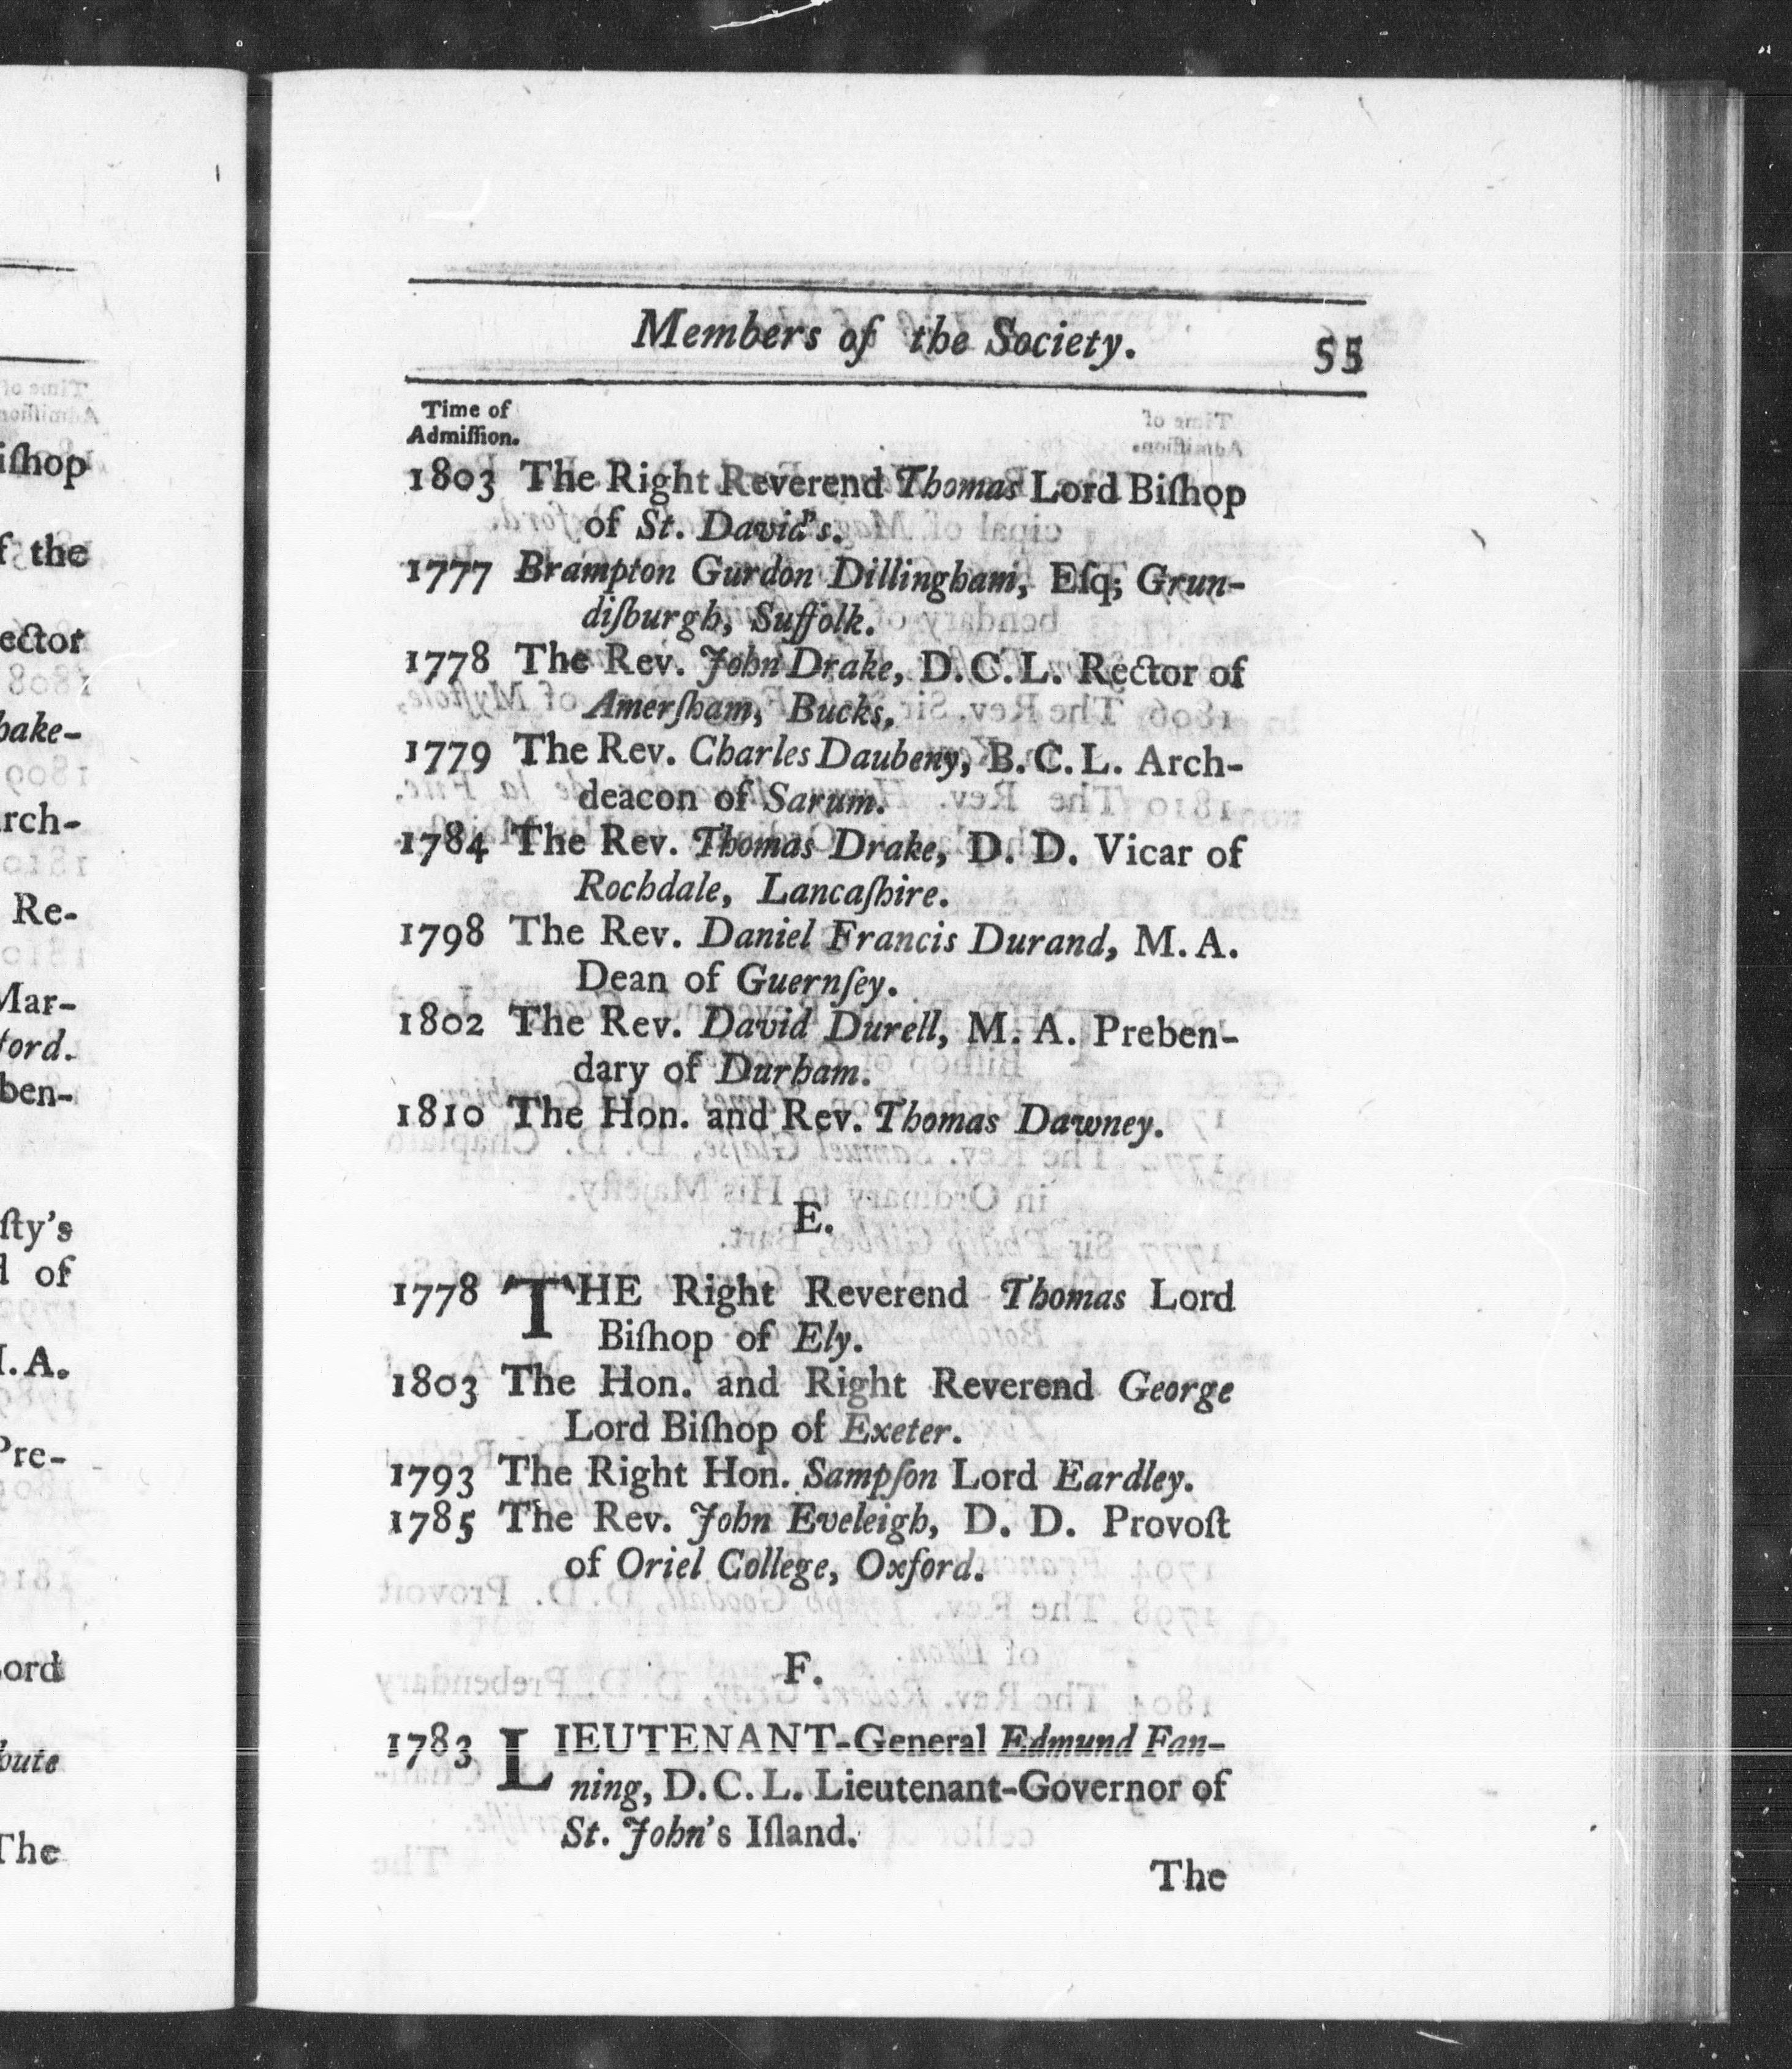 Members of the Society. 55
Time of
Admiſſion.
1803 The Right Reverend Thomas Lord Biſhop
of St. David's.
1777 Brampton Gurdon Dillingham, Eſq; Grun-
diſburgh, Suffolk.
1778 The Rev. John Drake, D.C.L. Rector of
Amerſham, Bucks,
1779 The Rev. Charles Daubeny, B.C.L. Arch-
deacon of Sarum.
1784 The Rev. Thomas Drake, D. D. Vicar of
Rochdale, Lancaſhire.
1798 The Rev. Daniel Francis Durand, M.A.
Dean of Guernſey.
1802 The Rev. David Durell, M. A. Preben-
dary of Durham.
1810 The Hon. and Rev. Thomas Dawney.
E.
1778 THE Right Reverend Thomas Lord
Biſhop of Ely.
1803 The Hon. and Right Reverend George
Lord Biſhop of Exeter.
1793 The Right Hon. Sampſon Lord Eardley.
1785 The Rev. John Eveleigh, D. D. Provoſt
of Oriel College, Oxford.
F.
1783 LIEUTENANT-General Edmund Fan-
ning, D.C.L. Lieutenant-Governor of
St. John's Iſland.
The